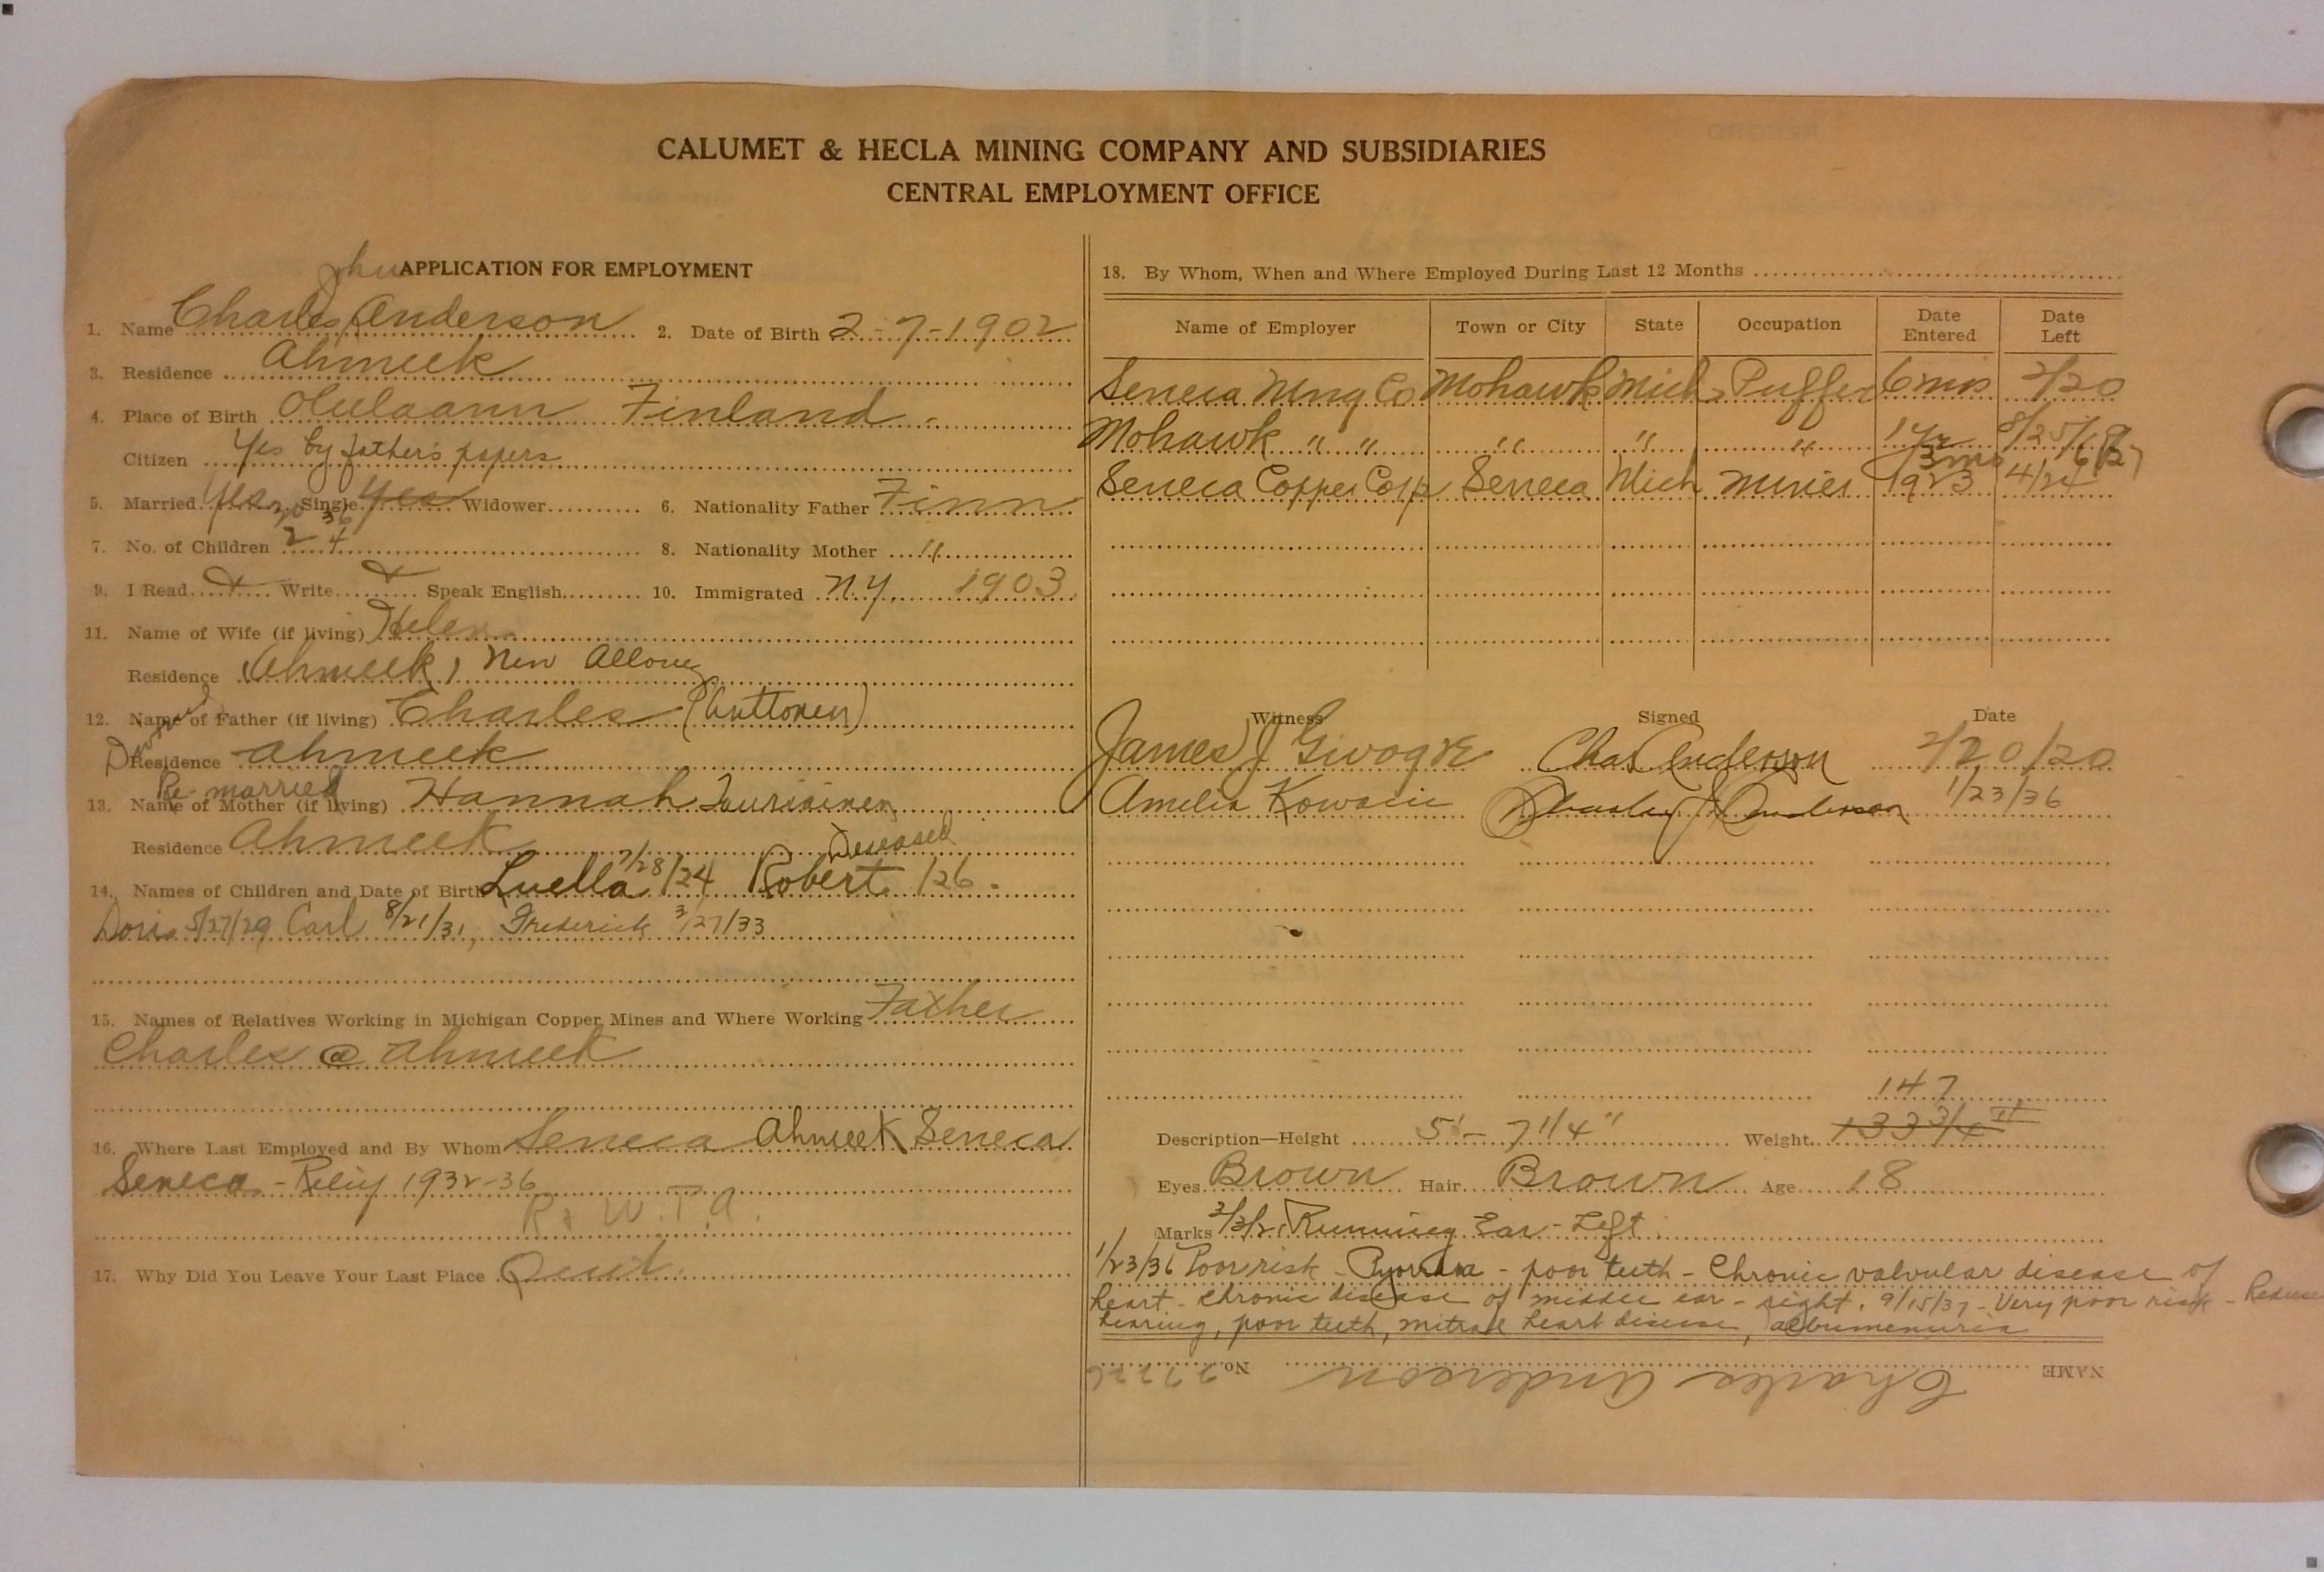 CALUMET & HECLA MINING COMPANY AND SUBSIDIARIES
CENTRAL EMPLOYMENT OFFICE
APPLICATION FOR EMPLOYMENT
John
1. Name Charles Anderson 2. Date of Birth 2-7-1902
3. Residence Ahmeek
4. Place of Birth Finland
Citizen Yes by father's papers
5. Married Yes Single Yes Widower 6. Nationality Father Finn
30 36
7. No. of Children 2 4 8. Nationality Mother "
9. I Read x Write x Speak English 10. Immigrated N.Y. 1903
11. Name of Wife (if living) Helen
Residence Ahmeek, New Allouez
12. Name of Father (if living) Charles
Residence Ahmeek
Re-married
13. Name of Mother (if living) Hannah
Residence Ahmeek
Deseased
14. Names of Children and Date of Birth Luella 7/28/24 Robert /26.
Doris 5/27/29 Carl 8/21/31, Frederick 3/27/33
15. Names of Relatives Working in Michigan Copper Mines and Where Working Father
Charles @ Ahmeek
16. Where Last Employed and By Whom Seneca Ahmeek Seneca
Seneca - 1932-36
W.P.A.
17. Why Did You Leave Your Last Place Quit
18. By Whom, When and Where Employed During Last 12 Months
Name of Employer Town or City State Occupation Date Entered Date Left
Seneca Mng Co Mohawk Mich Puffer 6 mos 2/20
Mohawk " " " " " 1 yr 8/25/19
3 mos
Seneca Copper Corp Seneca Mich Miner 1923 4/24
Witness Signed Date
James J Chas Anderson 2/20/20
Amelia Charles J. Anderson 1/23/36
147
Description—Height 5' - 7 1/4" Weight 133 3/4 #
Eyes Brown Hair Brown Age 18
Marks Running Ear - Left
1/23/36 Poor risk - Pyorrhea - poor teeth - Chronic valvular disease of
heart - chronic disease of middle ear - right. 9/15/37 - Very poor risk -
hearing, poor teeth, mitral heart disease, albumenuria
NAME Charles Anderson No.